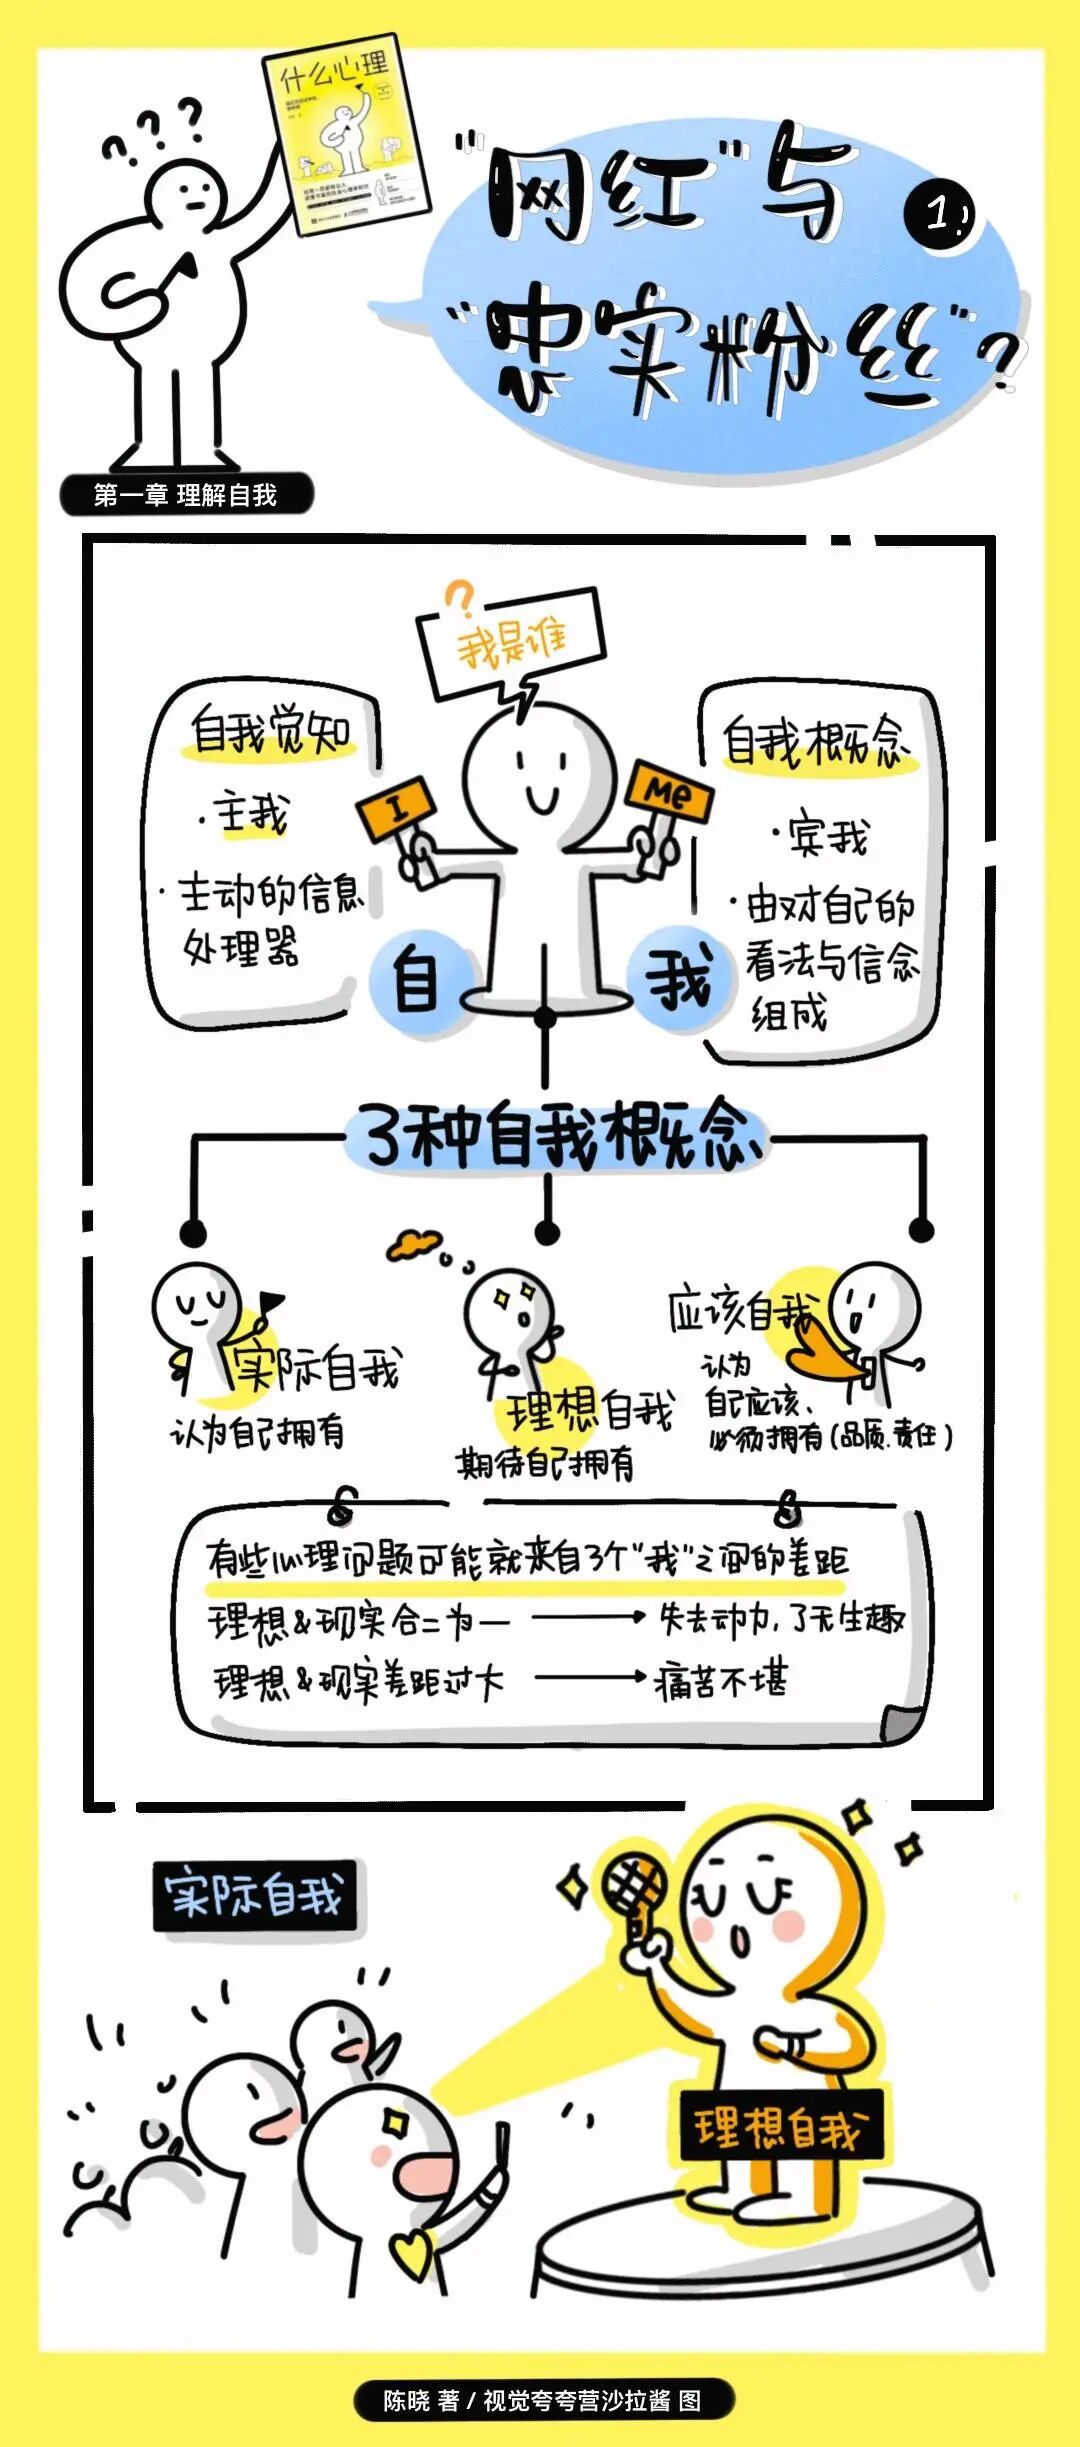 什么心理
???
"网红"与
"忠实粉丝"?
1
第一章 理解自我
?
我是谁
自我觉知
·主我
·主动的信息
处理器
I
Me
自我概念
·宾我
·由对自己的
看法与信念
组成
自
我
3种自我概念
实际自我
认为自己拥有
理想自我
期待自己拥有
应该自我
认为
自己应该、
必须拥有(品质.责任)
有些心理问题可能就来自3个"我"之间的差距
理想&现实合二为一 → 失去动力,了无生趣
理想&现实差距过大 → 痛苦不堪
实际自我
理想自我
陈晓 著 / 视觉夸夸营沙拉酱 图